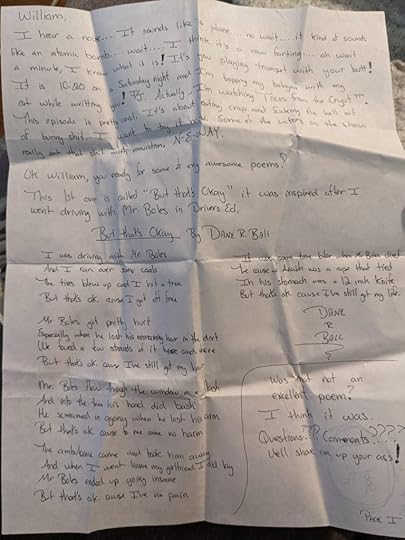 William,
I hear a noise... It sounds like a plane... no wait... it kind of sounds
like an atomic bomb... wait... I think it's a cow farting... oh wait
a minute, I know what it is! It's you playing trumpet with your butt!
It is 10:30 on a Saturday night and I'm bopping my bologna with my
cat while writing you! J/J. Actually I'm watching "Tales from the Crypt".
This episode is pretty cool. It's about eating craps and sucking the balls out
of bunny shit. I want to try it. Some of the actors in the show
really eat that shit with N-E-WAY.
OK William, you ready for some of my awesome poems?
This 1st one is called "But that's Okay" it was inspired after I
went driving with Mr. Boles in Drivers Ed.
But that's Okay By DANE R BALL
I was driving with Mr. Boles
And I ran over some coals
The tires blew up and I hit a tree
But that's ok. cause I got off free
Mr Boles got pretty hurt
Especially when he lost his hair in the dirt
We found a few strands of it here and there
But that's ok. cause I've still got my hair
Mr. Boles flew through the window in a flash
And into the tree his head did bash
He screamed in agony when he lost his arm
But that's ok cause to me came no harm
The ambulance came and took him away
And when I went home my girlfriend I did lay
Mr Boles ended up going insane
But that's ok. cause I've no pain
It was sure time when Mr Boles died
The cause of death was a rope that tied
In his stomach was a 12 inch knife
But that's ok cause I've still got my life.
DANE
R
BALL
Was that not an
excellent poem?
I think it was.
Questions?? Comments????
Well shove em up your ass!
PAGE I